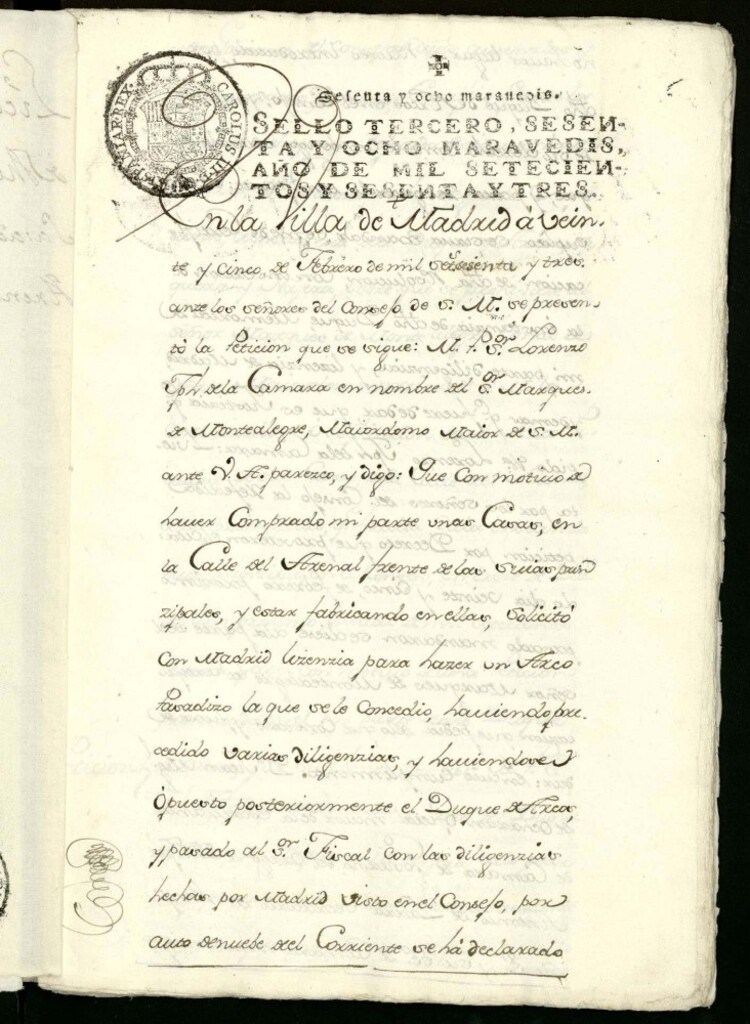 CAROLUS III D. G. HISPANIAR. REX.
Sesenta y ocho marauedis.
SELLO TERCERO, SESEN-
TA Y OCHO MARAVEDIS,
AÑO DE MIL SETECIEN-
TOS Y SESENTA Y TRES.
En la Villa de Madrid à vein-
te y cinco de Febrero de mil setesesenta y tres
ante los señores del Consejo de S. M. se presen-
tò la Peticion que se sigue: M. P. Sor. Lorenzo
Jph de la Camara en nombre del Sor. Marques
de Montealegre, Maiordomo Maior de S. M.
ante V. A. parezco, y digo: Que con motiuo de
hauer Comprado mi parte unas Casas, en
la Calle del Arenal frente de las suias prin
zipales, y estar fabricando en ellas, solicitò
con Madrid lizenzia para hazer un Arco
Pasadizo la que se le Concedio, hauiendo pre-
cedido varias diligenzias, y hauiendose
opuesto posteriormente el Duque de Arcos,
y pasado al Sor. Fiscal con las diligenzias
hechas por Madrid visto en el Consejo, por
auto de nuebe del Corriente se há declarado